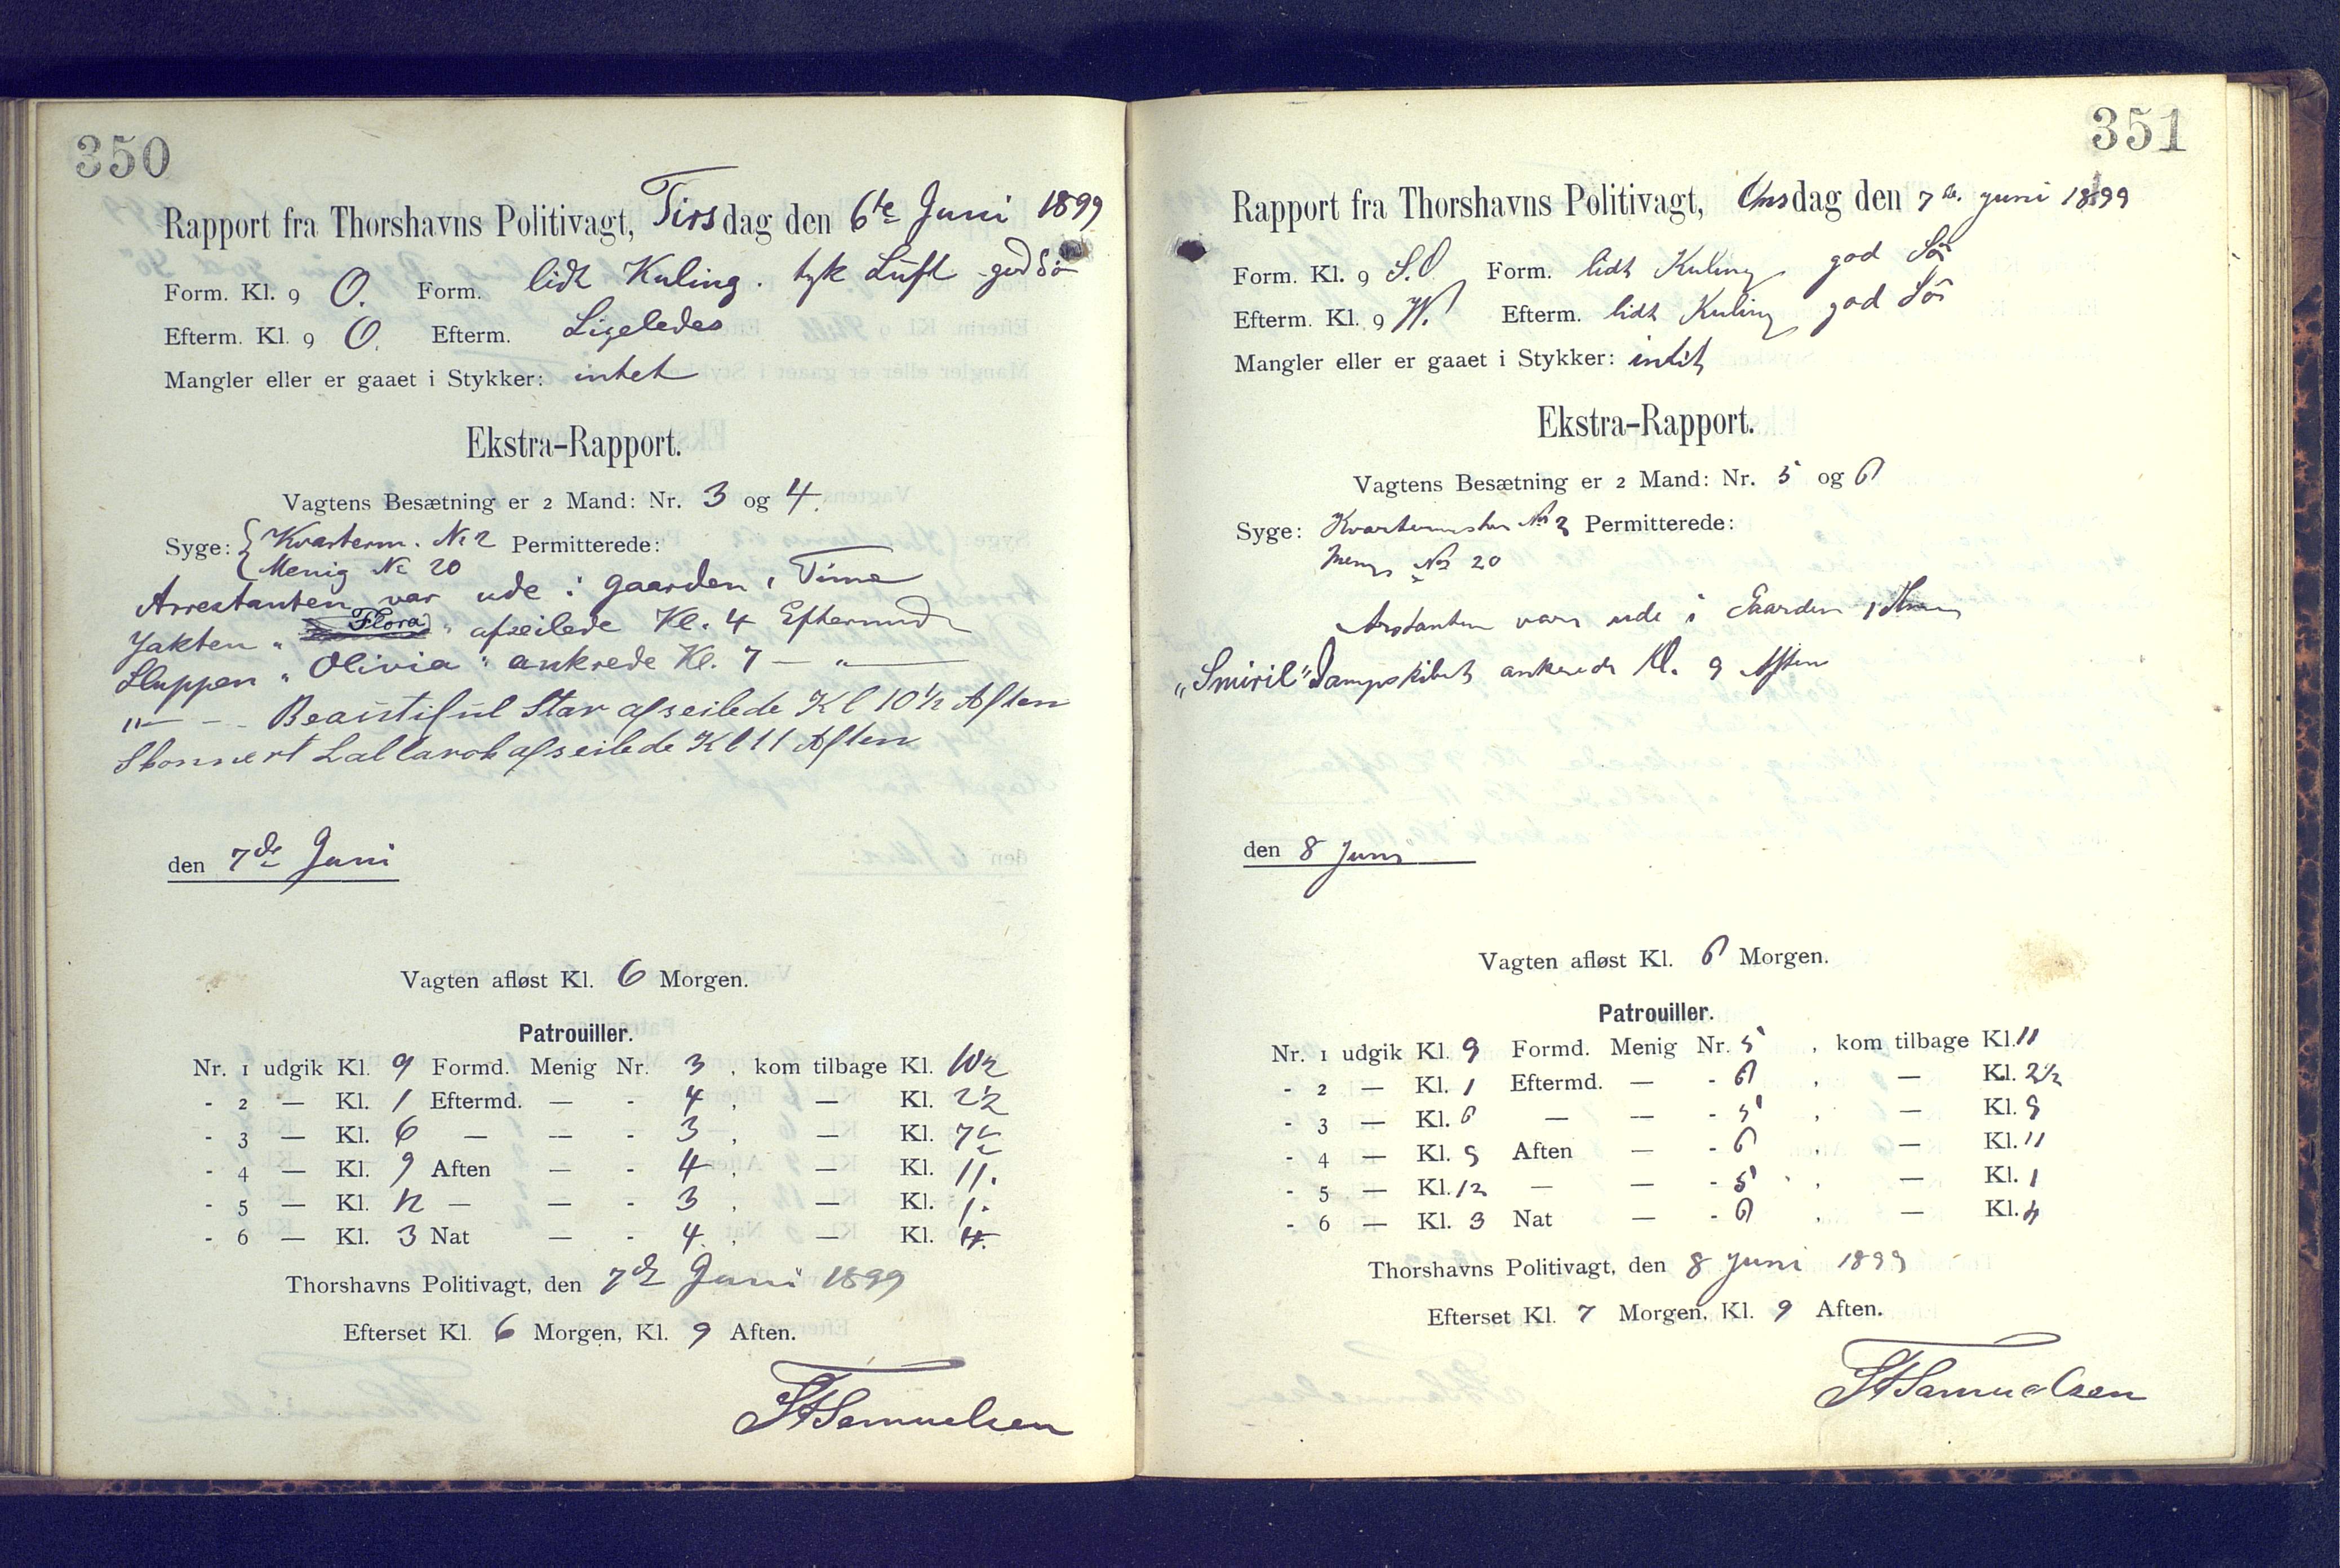 350
Rapport fra Thorshavns Politivagt, Tirsdag den 6te Juni 1899
Form. Kl. 9 O. Form. lidt Kuling. tyk Luft god Sö
Efterm. Kl. 9 O. Efterm. Ligeledes
Mangler eller er gaaet i Stykker: intet
Ekstra-Rapport.
Vagtens Besætning er 2 Mand: Nr. 3 og 4.
Syge: { Kvarterm. No 2 Permitterede:
Menig No 20
Arrestanten var ude i gaarden 1 Time
Jakten " Flora " afseilede Kl. 4 Eftermid
Sluppen " Olivia " ankrede Kl. 7 — " —
" — - Beaůtifůl Star afseilede Kl 10½ Aften
Skonnert Lallarok afseilede Kl 11 Aften
den 7de Juni
Vagten afløst Kl. 6 Morgen.
Patrouiller.
Nr. 1 udgik Kl. 9 Formd. Menig Nr. 3 , kom tilbage Kl. 10½
- 2 — Kl. 1 Eftermd. — - 4 , — Kl. 2½
- 3 — Kl. 6 — — - 3 , — Kl. 7½
- 4 — Kl. 9 Aften — - 4 , — Kl. 11.
- 5 — Kl. 12 — — - 3 , — Kl. 1.
- 6 — Kl. 3 Nat — - 4 , — Kl. 4.
Thorshavns Politivagt, den 7de Juni 1899
Efterset Kl. 6 Morgen, Kl. 9 Aften.
Samuelsen
351
Rapport fra Thorshavns Politivagt, Onsdag den 7de. juni 1899
Form. Kl. 9 S.O. Form. lidt Kuling god Sö
Efterm. Kl. 9 W. Efterm. lidt Kuling god Sö
Mangler eller er gaaet i Stykker: intit
Ekstra-Rapport.
Vagtens Besætning er 2 Mand: Nr. 5 og 6
Syge: Kvartermster No 2 Permitterede:
Menig No 20
Arestanten var ude i Gaarden 1 Time
"Smiril" Dampskibet ankrede Kl. 9 Aften
den 8 Juni
Vagten afløst Kl. 6 Morgen.
Patrouiller.
Nr. 1 udgik Kl. 9 Formd. Menig Nr. 5 , kom tilbage Kl. 11
- 2 — Kl. 1 Eftermd. — - 6 , — Kl. 2½
- 3 — Kl. 6 — — - 5 , — Kl. 9
- 4 — Kl. 9 Aften — - 6 , — Kl. 11
- 5 — Kl. 12 — — - 5 , — Kl. 1
- 6 — Kl. 3 Nat — - 6 , — Kl. 4
Thorshavns Politivagt, den 8 Juni 1899
Efterset Kl. 7 Morgen, Kl. 9 Aften.
Samuelsen